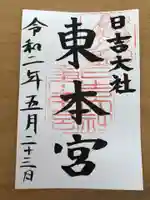 日吉大社
東本宮
令和二年五月二十三日